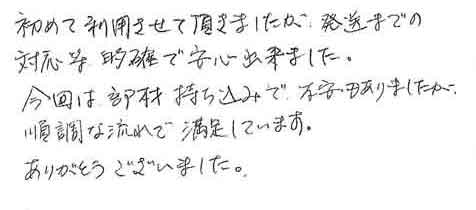 初めて利用させて頂きましたが、発送までの
対応等 的確で安心出来ました。
今回は部材持ち込みで、不安もありましたが、
順調な流れで満足しています。
ありがとうございました。